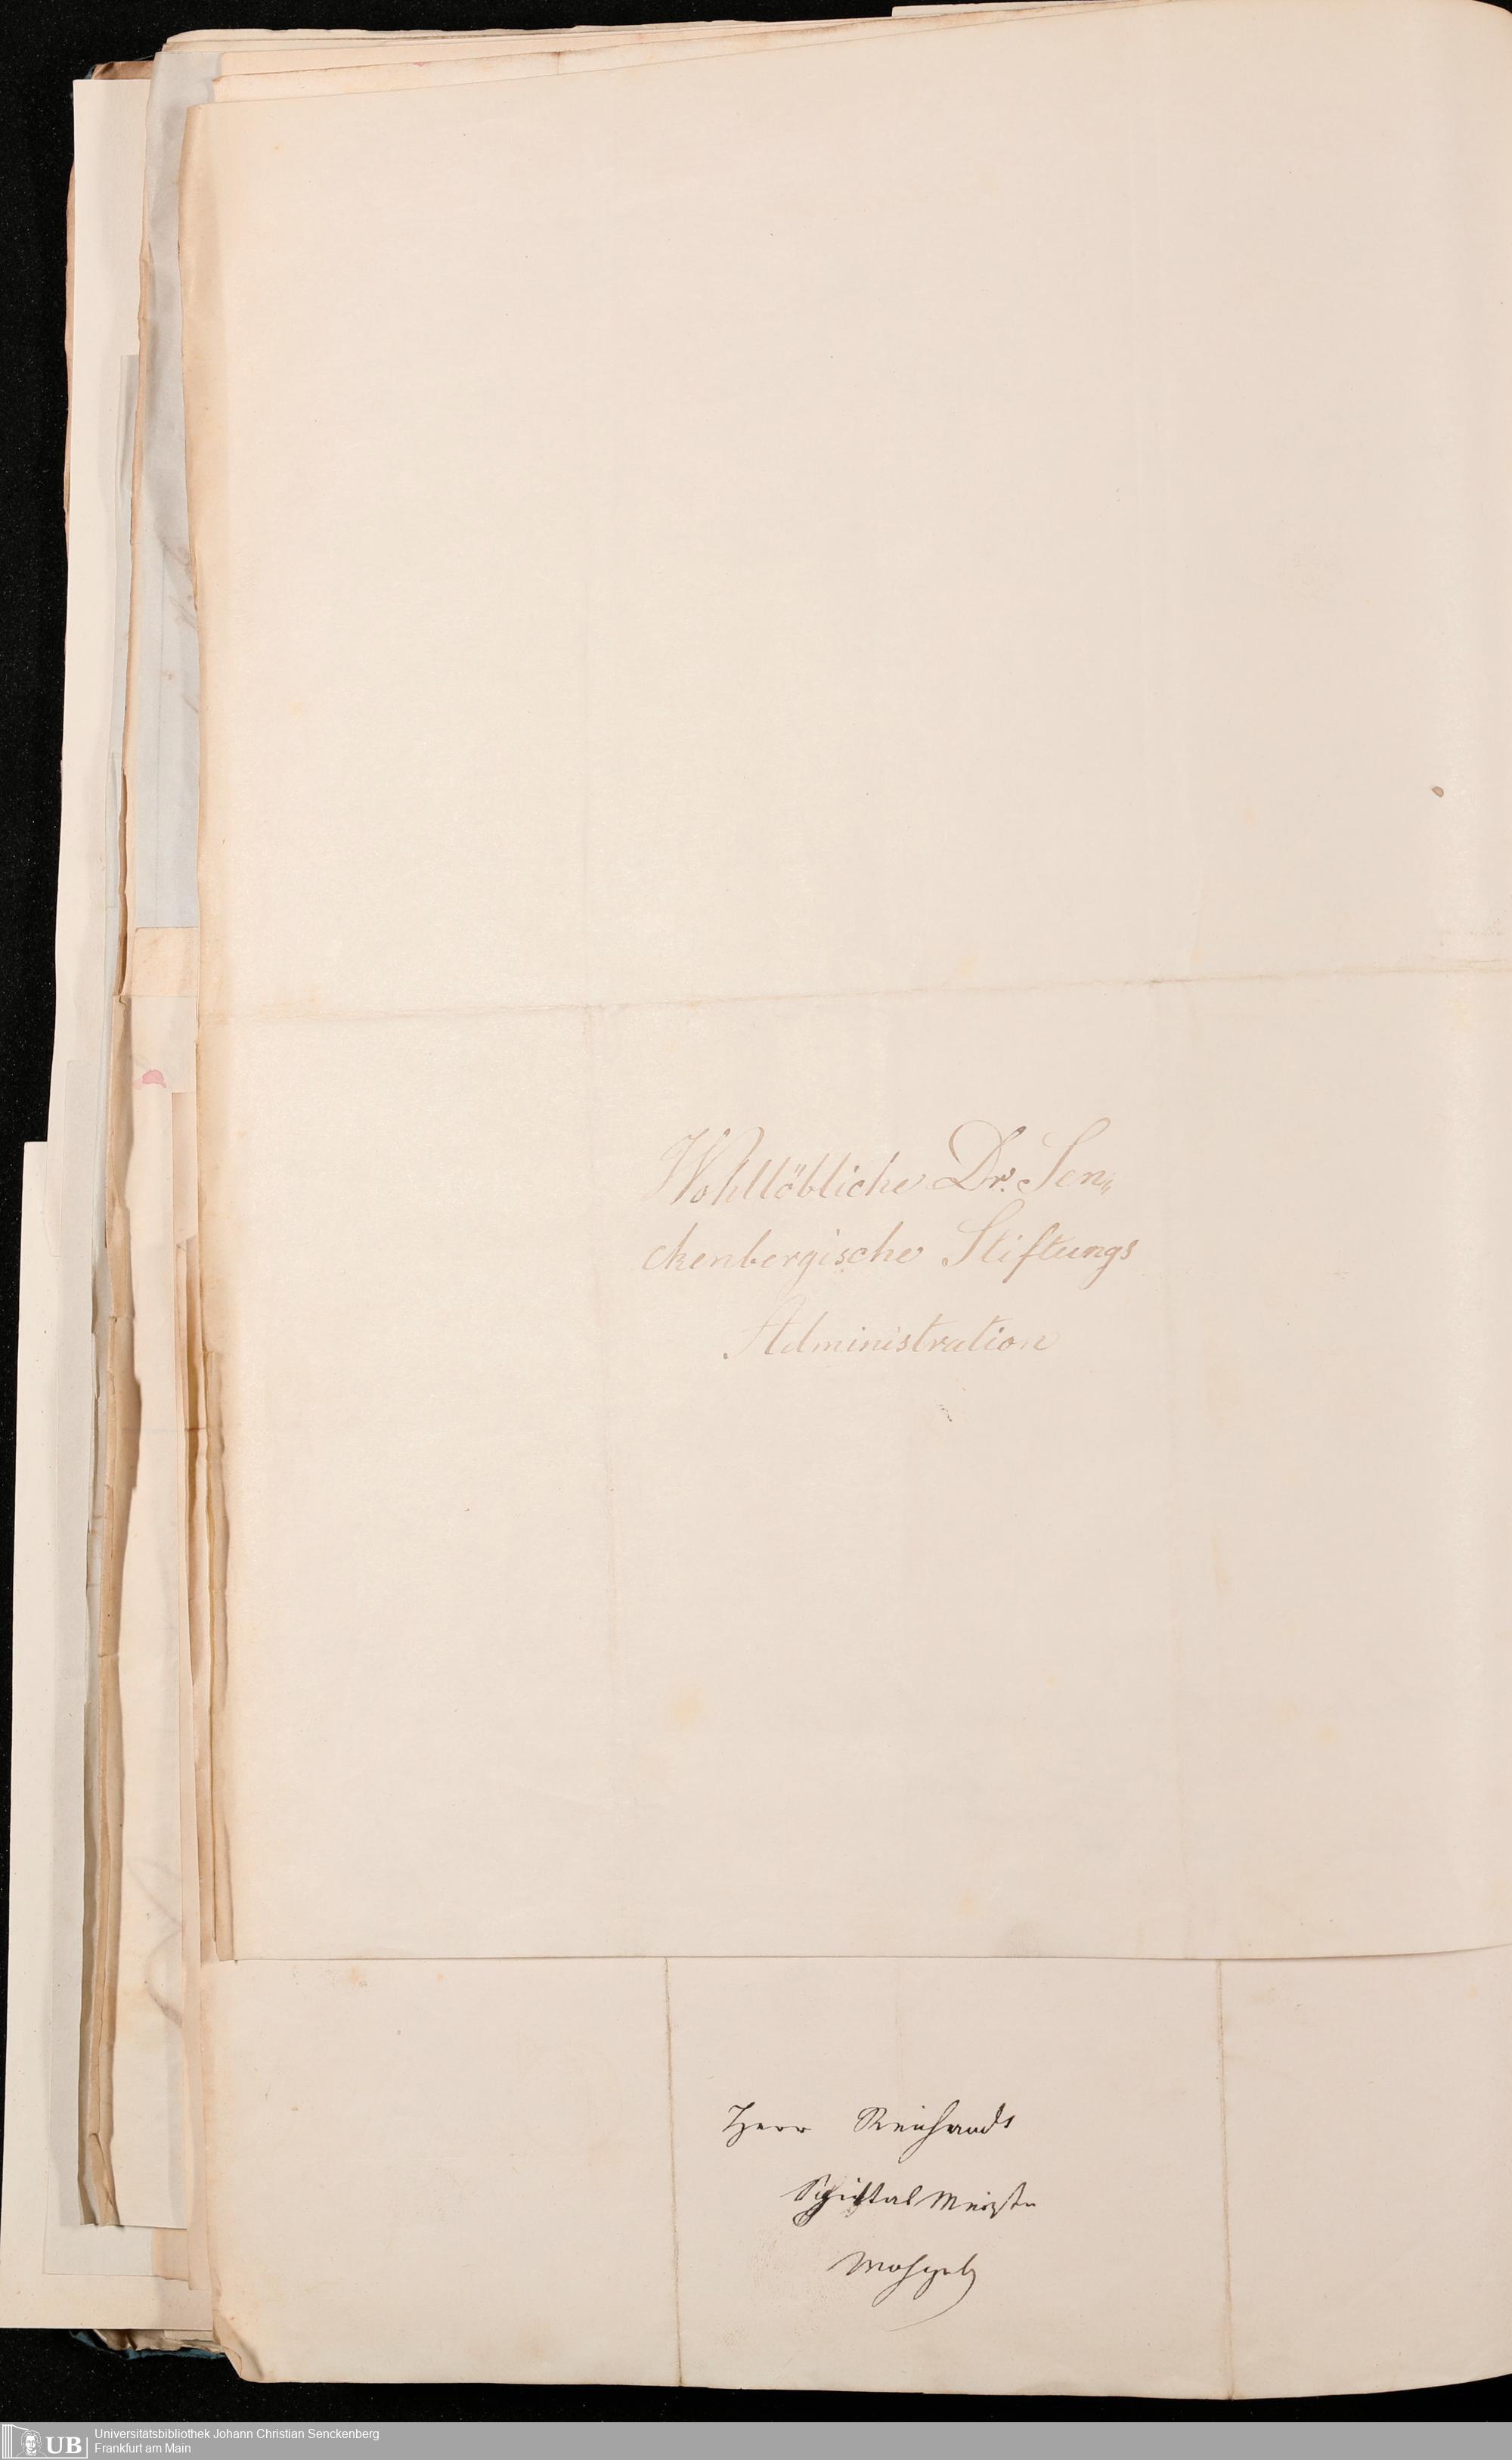 Wohllöbliche Dr. Sen„
ckenbergische Stiftungs
Administration
Herr Reinhardt
Spital Meister
Wohlgeb
UB
Universitätsbibliothek Johann Christian Senckenberg
Frankfurt am Main